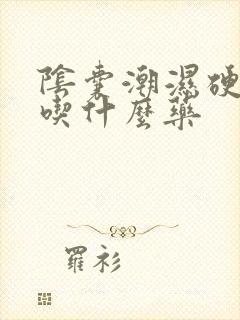 陰囊潮濕硬
喫什麼藥
羅衫